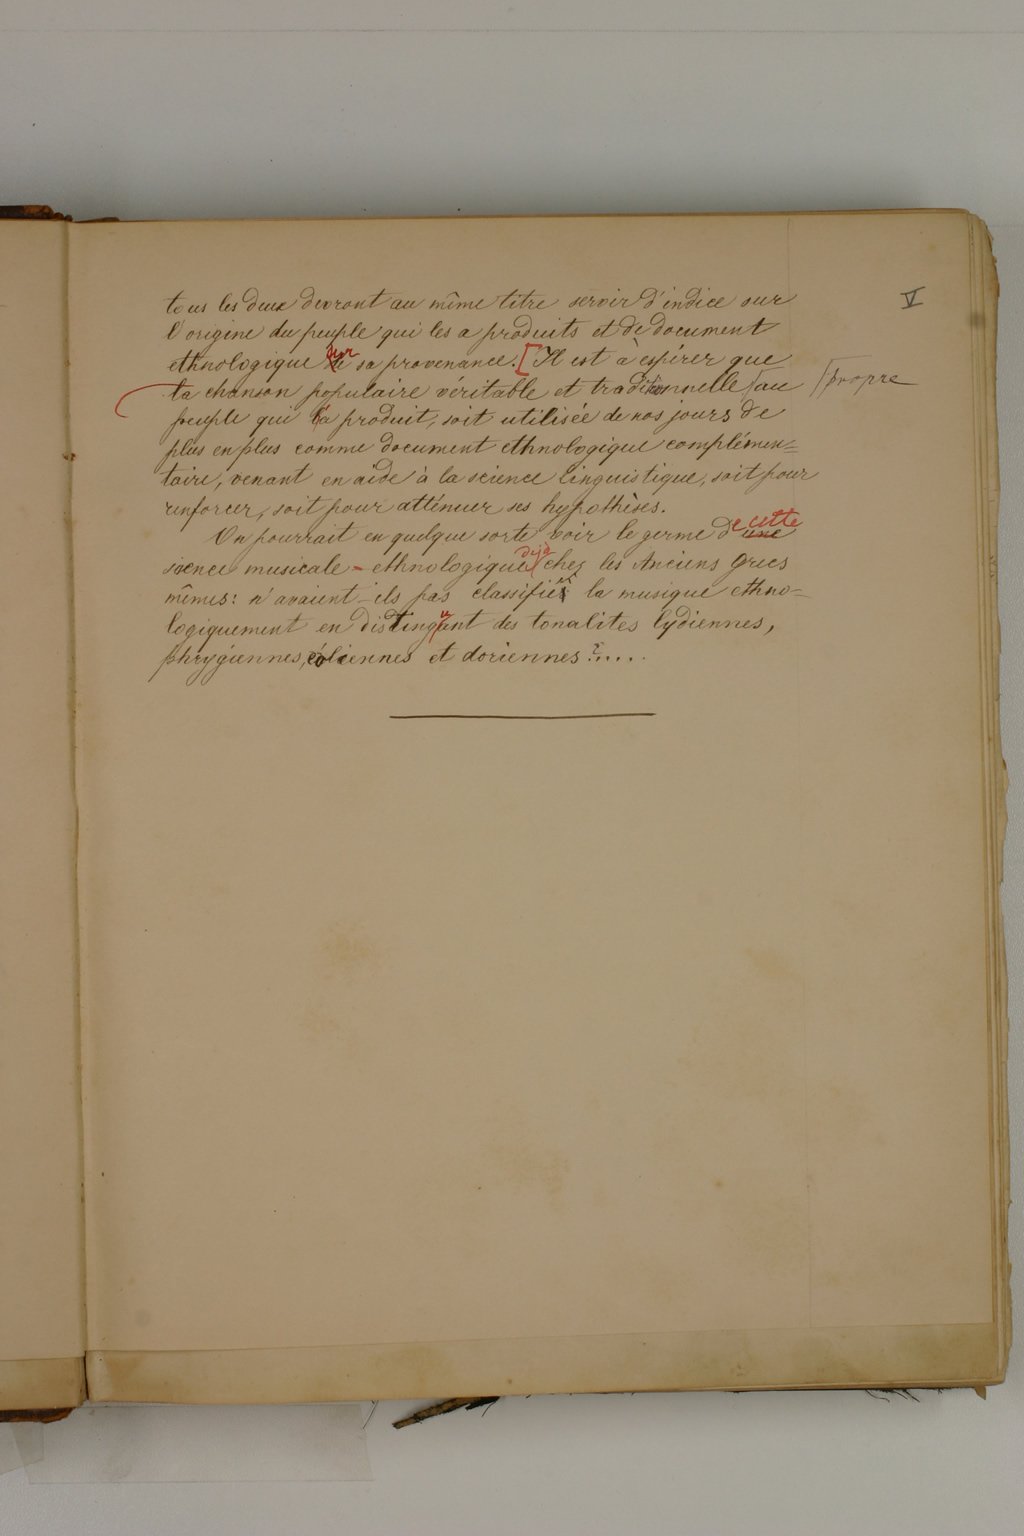 V
tous les deux devront au même titre servir d'indice sur
l'origine du peuple qui les a produits et de document
ethnologique sur sa provenance. [Il est à espérer que
la chanson populaire véritable et traditionnelle /au /propre
peuple qui l'a produit, soit utilisée de nos jours de
plus en plus comme document ethnologique complémen=
taire, venant en aide à la science linguistique, soit pour
renforcer, soit pour atténuer ses hypothèses.
On pourrait en quelque sorte voir le germe de cette une
science musicale - ethnologique déjà chez les Anciens Grecs
mêmes: n'avaient-ils pas classifié la musique ethno-
logiquement en distinguant des tonalites lydiennes,
phrygiennes, éoliennes et doriennes?.....